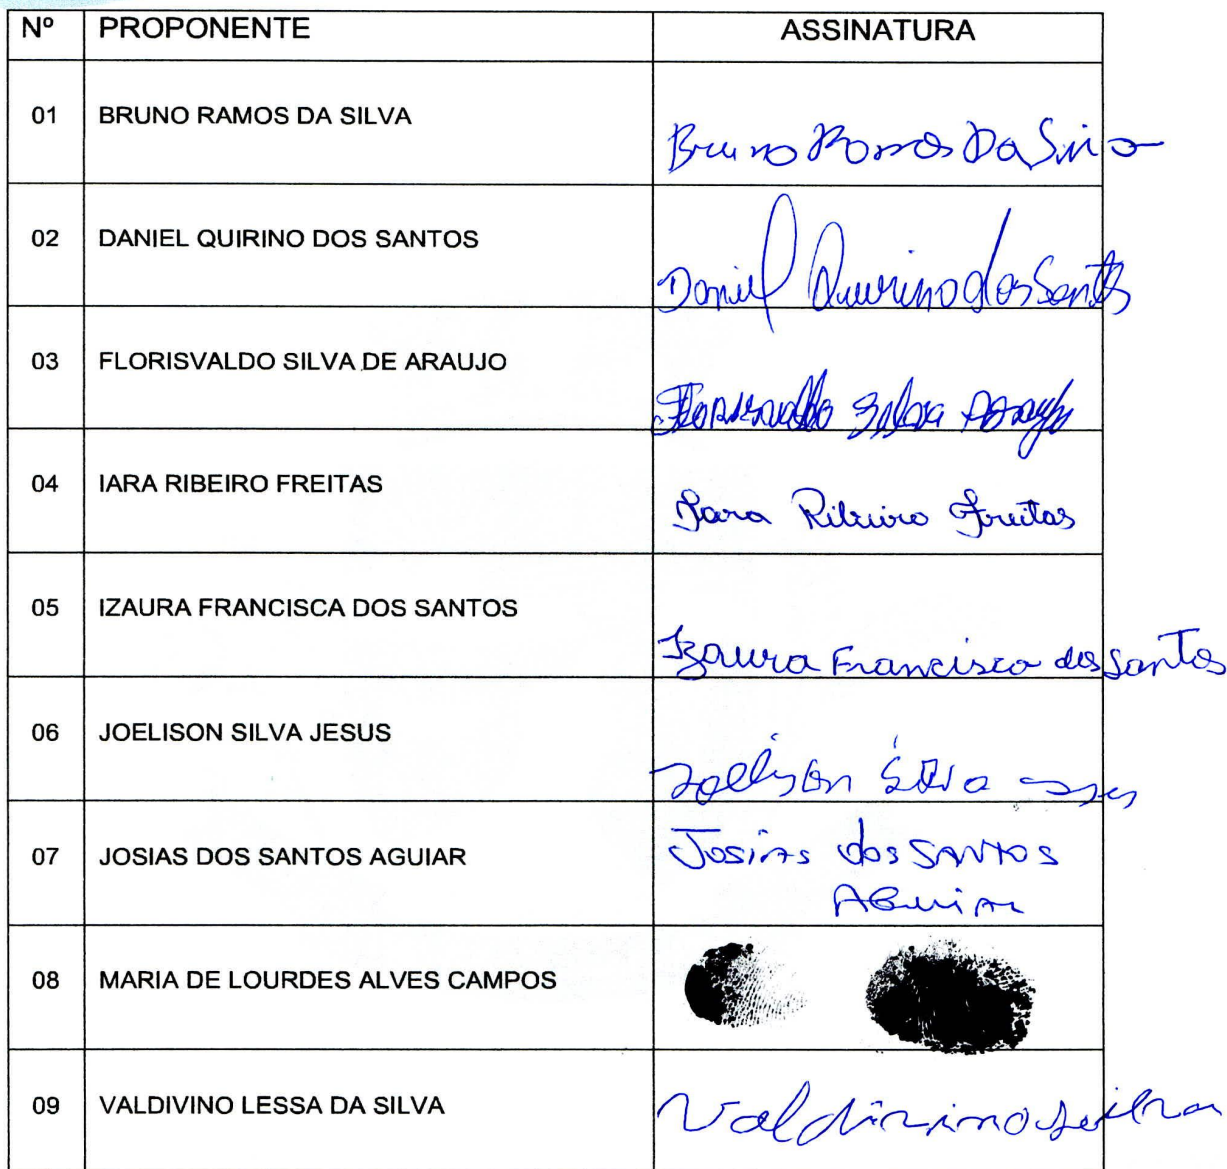 Nº PROPONENTE ASSINATURA
01 BRUNO RAMOS DA SILVA Bruno Ramos Da Silva
02 DANIEL QUIRINO DOS SANTOS Daniel Quirino dos Santos
03 FLORISVALDO SILVA DE ARAUJO Florisvaldo Silva Araujo
04 IARA RIBEIRO FREITAS Iara Ribeiro Freitas
05 IZAURA FRANCISCA DOS SANTOS Izaura Francisca dos Santos
06 JOELISON SILVA JESUS Joelison Silva
07 JOSIAS DOS SANTOS AGUIAR Josias dos SANTOS
AGuiAr
08 MARIA DE LOURDES ALVES CAMPOS
09 VALDIVINO LESSA DA SILVA Valdivino